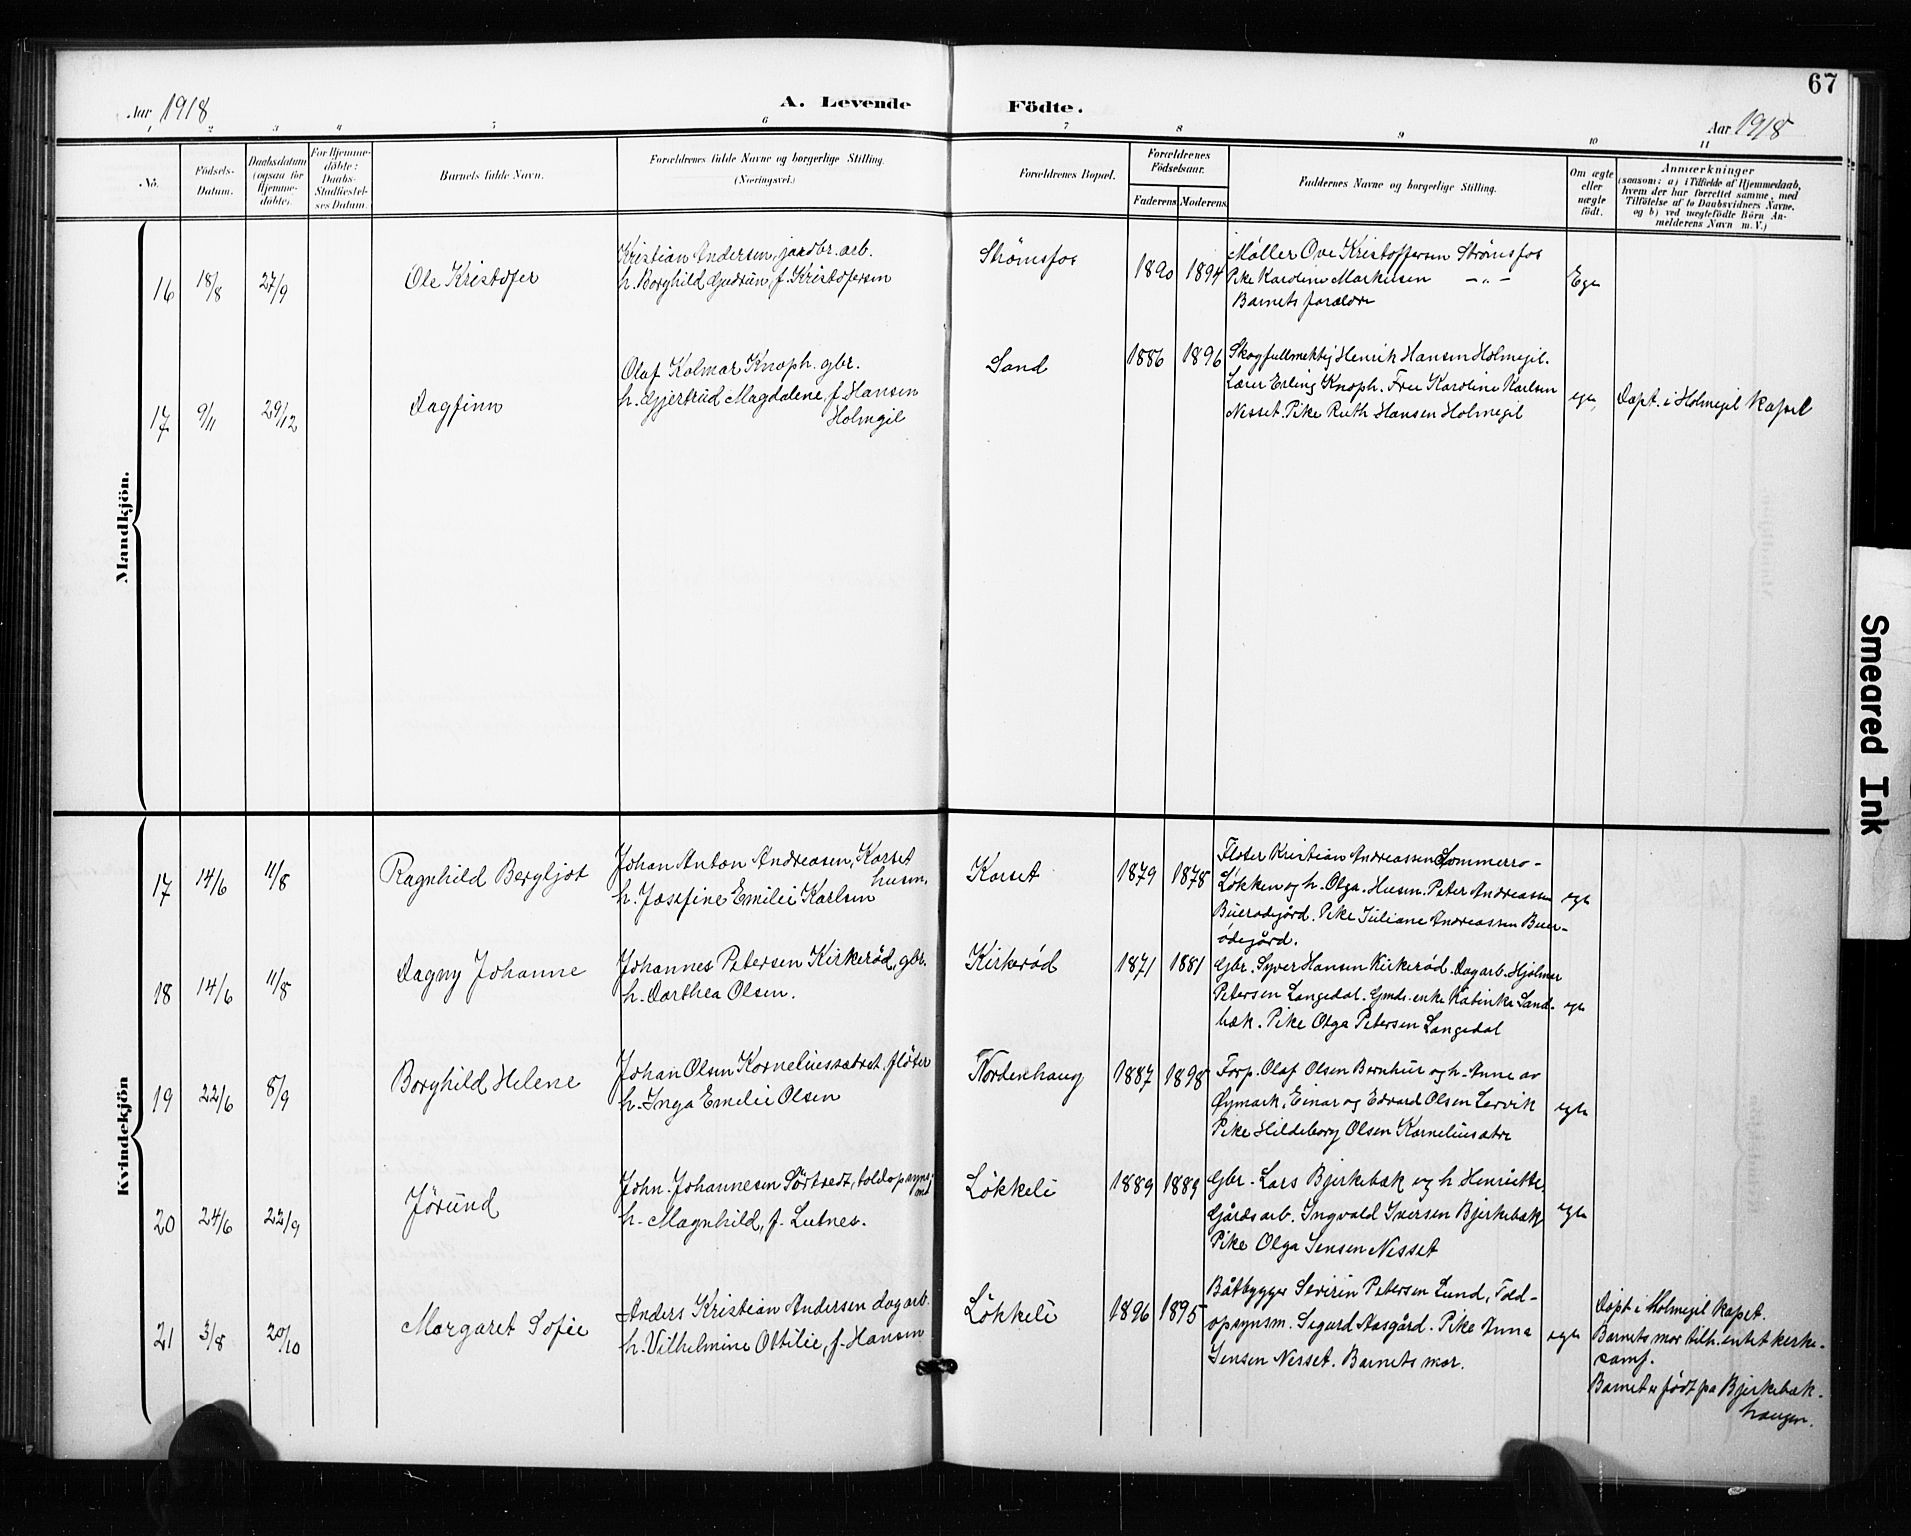 67
Aar 1918
A. Levende Födte.
Aar 1918
1 2 3 4 5 6 7 8 9 10 11
No.
Födsels-
Datum.
Daabsdatum
(ogsaa for
Hjemme-
døbte).
For Hjemme-
døbte:
Daabs-
Stadfæstel-
ses Datum.
Barnets fulde Navn.
Forældrenes fulde Navne og borgerlige Stilling.
(Næringsvei.)
Forældrenes Bopæl.
Forældrenes
Födselsaar.
Faderens. Moderens.
Faddernes Navne og borgerlige Stilling.
Om ægte
eller
uægte
født.
Anmærkninger
(saasom: a) i Tilfælde af Hjemmedaab,
hvem der har forrettet samme, med
Tilføielse af to Daabsvidners Navne.
og b) ved uægtefødte Börn An-
melderens Navn m. V.)
Mandkjön.
16 18/8 27/9 Ole Kristofer
Kristian Andersen, jordbr. arb.
h. Borghild Gudrun, f. Kristofersen
Strømsfos 1890 1894
Møller Ove Kristoffersen Strømsfos
Pike Karoline Markusen —"—
Barnets forældre
Egte
17 9/11 29/12 Dagfinn
Olaf Kolmar Knoph. gbr.
h. Gjertrud Magdalene, f. Hansen
Holmgil
Sand 1886 1896
Skogfullmektig Henrik Hansen Holmegil.
Lærer Erling Knoph. Frue Karoline Karlsen
Nesset. Pike Ruth Hansen Holmegil
egte,
Døpt. i Holmegil kapel
Kvindekjön
17 14/6 11/8 Ragnhild Bergljot
Johan Anton Andreasen, Korset
husm.
h. Josefine Emilie Karlsen
Korset 1879 1878
Fløter Kristian Andreassen Sommerro-
Løkken og h. Olga. Husm. Peter Andreassen
Buerødegård. Pike Juliane Andreassen Buer-
ødegård.
egte
18 14/6 11/8 Dagny Johanne
Johannes Petersen Kirkerød, gbr.
h. Dorthea Olsen.
Kirkerød 1871 1881
Gbr. Syver Hansen Kirkerød. Dagarb. Hjelmer
Petersen Langedal. Gmds. enke Katinka Sand-
bæk. Pike Olga Petersen Langedal
egte
19 22/6 8/9 Borghild Helene
Johan Olsen Korneliussætret, fløter
h. Inga Emilie Olsen
Nordenhaug 1887 1898
Forp. Olaf Olsen Bernhus og h. Anne av
Øymark, Einar og Edvard Olsen Lervik
Pike Hildeborg Olsen Korneliusætre
egte
20 24/6 22/9 Jørund
John. Johannesen Sørtvedt, toldopsyns-
md
h. Magnhild, f. Lutnes.
Løkkeli 1889 1889
Gbr. Lars Bjerkebæk og h Henriette,
Gårdsarb. Ingvald Iversen Bjerkebæk
Pike Olga Jensen Nesset
egte
21 3/8 20/10 Margaret Sofie
Anders Kristian Andersen dagarb.
h. Vilhelmine Ottilie, f. Hansen
Løkkeli 1896 1895
Båtbygger Severin Petersen Lund, Told-
opsynsm. Sigurd Aasgård. Pike Anna
Jensen Nesset. Barnets mor.
egte
Døpt i Holmegil kapel.
Barnets mor tilh. intet kirke-
samf.
Barnet er født på Bjerkebæk-
haugen.
Smeared Ink